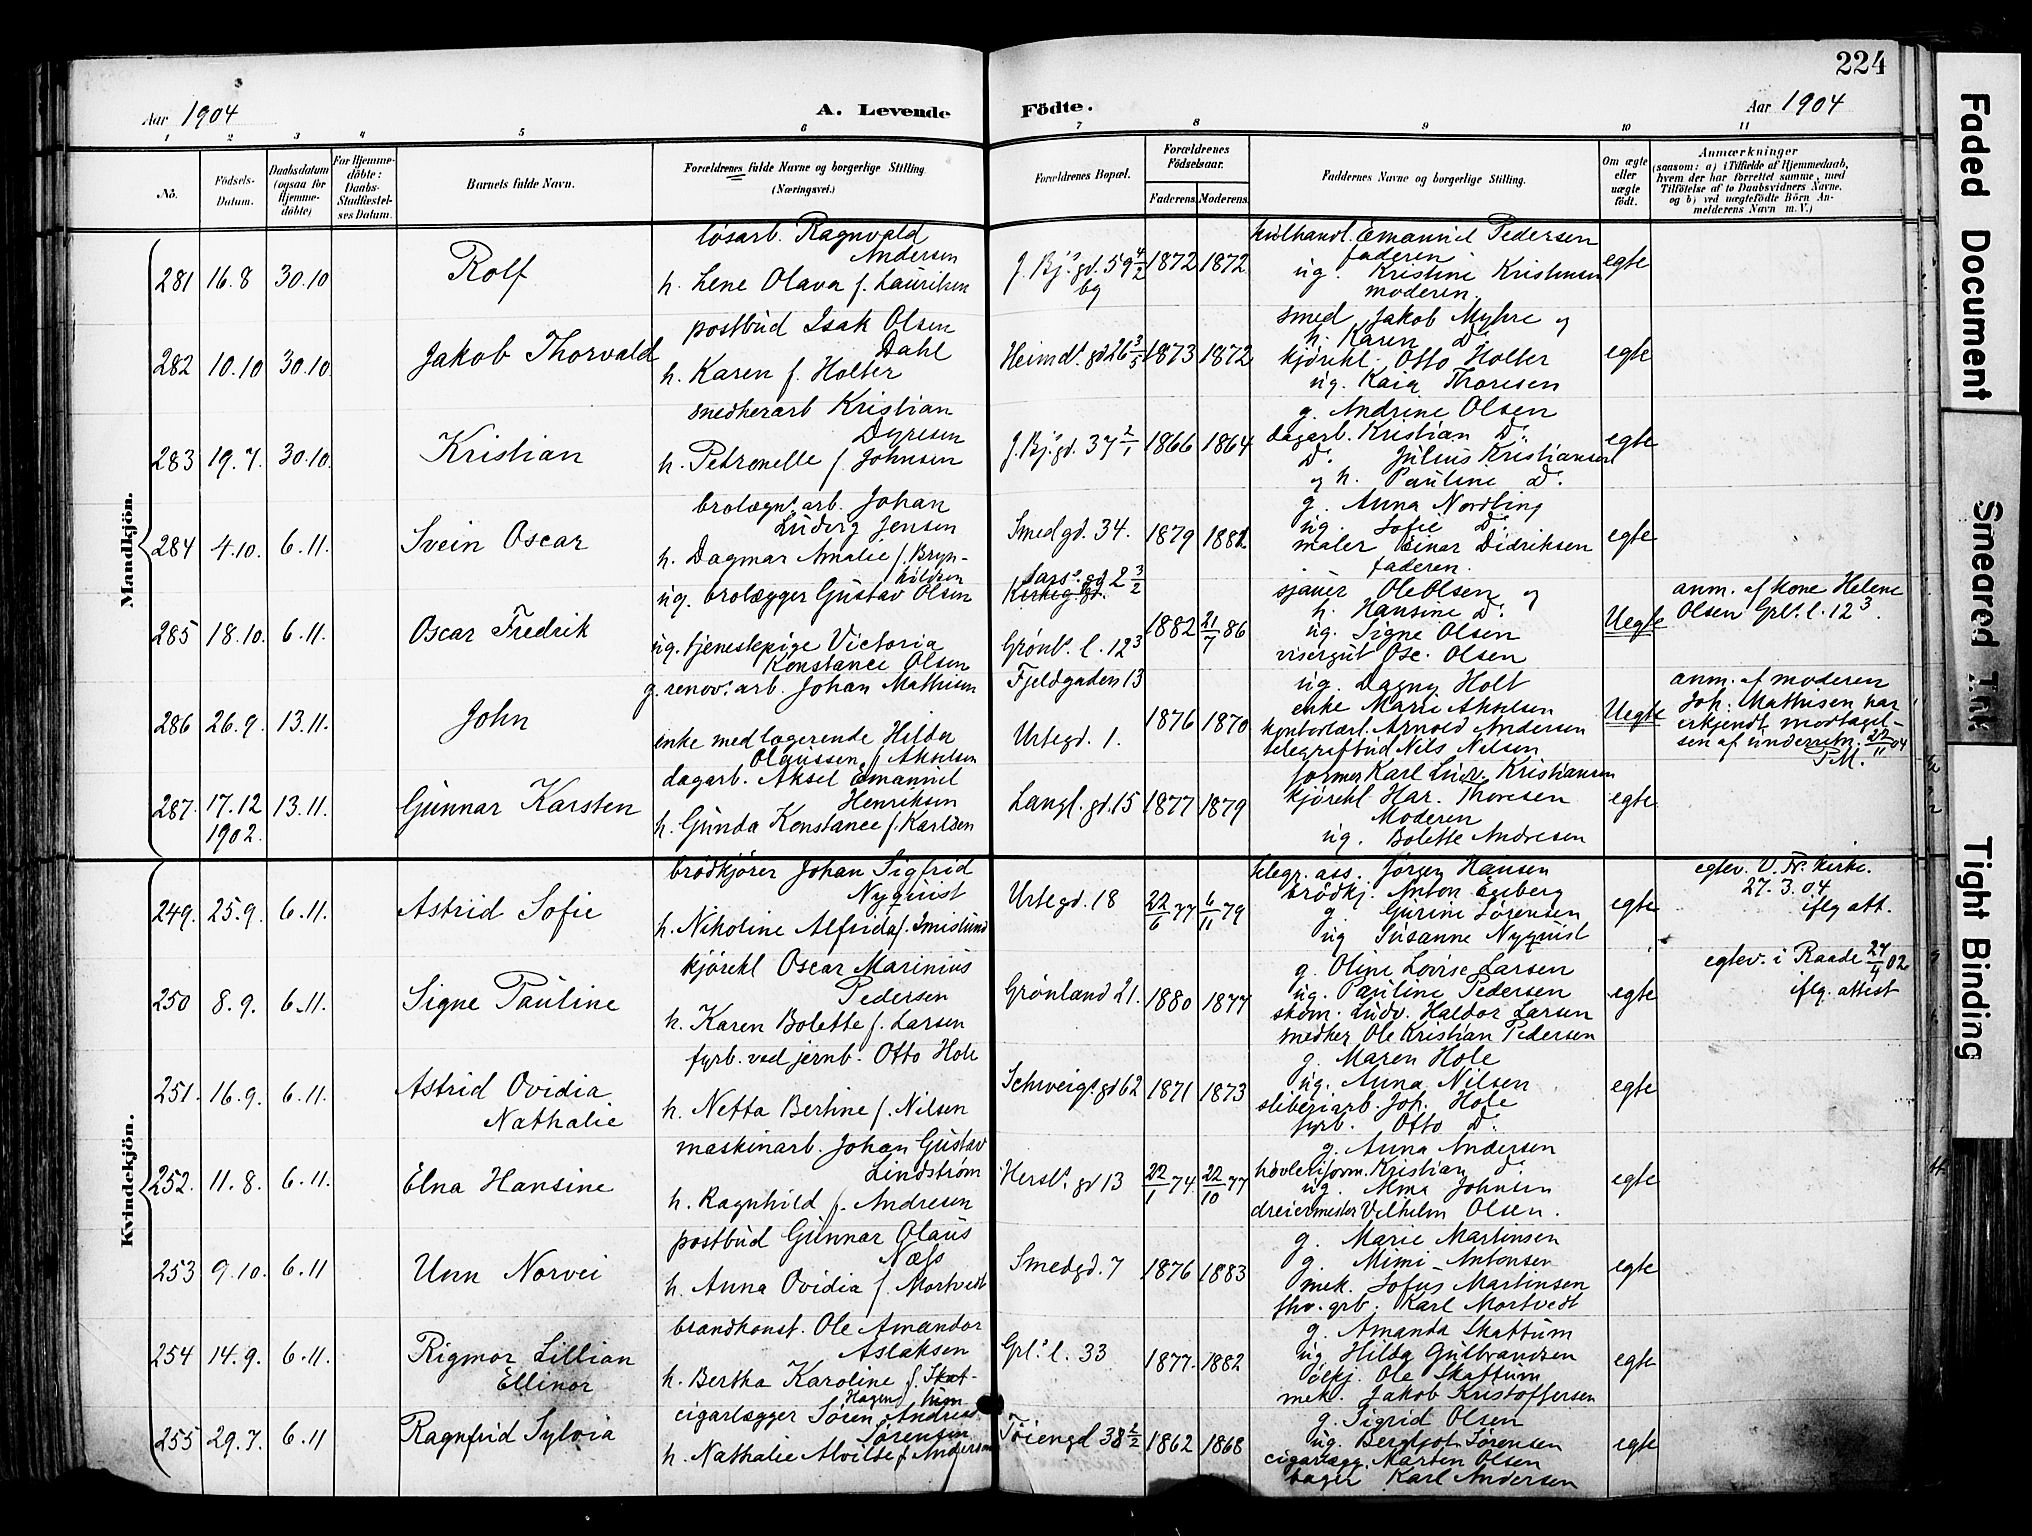 224
Aar 1904
A. Levende Födte.
Aar 1904
1 2 3 4 5 6 7 8 9 10 11
No.
Födsels-Datum.
Daabsdatum (ogsaa for Hjemme-döbte)
For Hjemme-döbte: Daabs-Stadfæstel-ses Datum.
Barnets fulde Navn.
Forældrenes fulde Navne og borgerlige Stilling (Næringsvei.)
Forældrenes Bopæl.
Forældrenes Födselsaar.
Faderens Moderens
Faddernes Navne og borgerlige Stilling.
Om ægte eller uægte födt.
Anmærkninger
(saasom: a) i Tilfælde af Hjemmedaab, hvem der har forrettet samme, med Tilföielse af to Daabsvidners Navne, og b) ved uægtefödte Börn Anmelderens Navn m. V.)
Mandkjön.
281 16.8 30.10 Rolf
løsarb. Ragnvald
Andersen
h. Lene Olava f. Lauritsen
J. Bj.s gd. 59 4/2
bg
1872 1872
kulhandl. Emanuel Pedersen
faderen
ug. Kristine Kristensen
moderen
egte
282 10.10 30.10 Jakob Thorvald
postbud Isak Olsen
Dahl
h. Karen f. Holter
Heimd.s gd 26 3/5
1873 1872
smed Jakob Myhre og
h. Karen Do.
kjørekl. Otto Holter
ug. Kaia Thoresen
egte
283 19.7. 30.10. Kristian
snedkerarb Kristian
Dyresen
h. Petronelle f. Johnsen
J. Bj.s gd. 37 2/1
1866 1864
g. Andrine Olsen
dagarb. Kristian Do.
Do. Julius Kristiansen
og h. Pauline Do.
egte
284 4.10. 6.11. Svein Oscar
brolægn.s arb. Johan
Ludvig Jensen
h. Dagmar Amalie f. Bryn-
hildsen
Smedgd. 34.
1879 1882
g. Anna Nordling
ug. Sofie Do.
maler Einar Didriksen
faderen.
egte
285 18.10. 6.11. Oscar Fredrik
ug. brolægger Gustav Olsen
ug. tjenestepige Victoria
Konstance Olsen
Lars.s gd 2 3/2
Grønl.s l. 12 3
1882 21/7 86
sjauer Ole Olsen og
h. Hansine Do.
ug. Signe Olsen
visergut Osc. Olsen
Uegte
anm. af kone Helene
Olsen Grl.s l. 12 3.
286 26.9. 13.11. John
g. renov.s arb. Johan Mathisen
enke med lagerende Hilda
Olaussen f. Akselsen
Fjeldgaden 13
Urtegd. 1.
1876 1870
ug. Dagny Holt
enke Marie Akselsen
kontorlærl. Arnold Andersen
telegrafbud Nils Nilsen
Uegte
anm. af moderen
Joh. Mathisen har
erkjendt modtagel-
sen af underretn. 22/11 04
PM.
287. 17.12 1902. 13.11. Gunnar Karsten
dagarb. Aksel Emanuel
Henriksen
h. Gunda Konstance f. Karlsen
Langl. gd. 15
1877 1879
former Karl Ludv. Kristiansen
kjørekl Har. Thoresen
Moderen
ug. Bolette Andresen
egte
Kvindekjön.
249. 25.9. 6.11. Astrid Sofie
brödkjörer Johan Sigfrid
Nyquist
h. Nikoline Alfrida f. Smislund
Urtegd. 18
22/6 77 6/11 79
telegr. ass. Jørgen Hansen
brödkj. Anton Enberg
g. Gurine Sørensen
ug Susanne Nyquist
egte
egtev. V. Fr. kirke.
27.3.04
iflg att.
250 8.9. 6.11. Signe Pauline
kjörekl Oscar Marinius
Pedersen
h. Karen Bolette f. Larsen
Grønland 21.
1880 1877
g. Oline Lovise Larsen
ug. Pauline Pedersen
skom. Ludv. Haldor Larsen
snedker Ole Kristian Pedersen
egte
egtev. i Raade 27/4 02
iflg. attest
251. 16.9. 6.11. Astrid Ovidia
Nathalie
fyrb. ved jernb. Otto Hole
h. Netta Bertine f. Nilsen
Schweig.s gd 62
1871 1873
g. Maren Hole
ug. Anna Nilsen
sliberiarb Joh. Hole
fyrb. Otto Do.
egte
252. 11.8. 6.11. Elna Hansine
maskinarb. Johan Gustav
Lindstrøm
h. Ragnhild f. Andresen
Hersl.s gd 13
22/1 74. 22/10 77
g. Anna Andersen
høvleriform. Kristian Do.
ug. Alma Johnsen
dreiermester Vilhelm Olsen.
egte
253 9.10. 6.11 Unn Norvei
postbud Gunnar Olaus
Næss
h. Anna Ovidia f. Mortvedt
Smedgd. 7
1876 1883
g. Marie Martinsen
g. Mimi Antonsen
mek. Sofus Martinsen
fhv. grb. Karl Mortvedt
egte
254 14.9. 6.11. Rigmor Lillian
Ellinor
brandkonst. Ole Amandor
Aslaksen
h. Bertha Karoline f. Skat-
tum
Grl.s l. 33
1877. 1882
g. Amanda Skattum
ug Hilda Gulbrandsen
ølkj. Ole Skattum
mek. Jakob Kristoffersen
egte
255 29.7. 6.11 Ragnfrid Sylvia
cigarlægger Søren Andreas
Hagen
Sørensen
h. Nathalie Alvilde f. Andersen
Tøiengd 38 2/2
1862 1868
g. Sigrid Olsen
ug. Bergljot Sørensen
cigarlægg. Marten Olsen
bager Karl Andersen
egte
Faded Document
Smeared Ink
Tight Binding